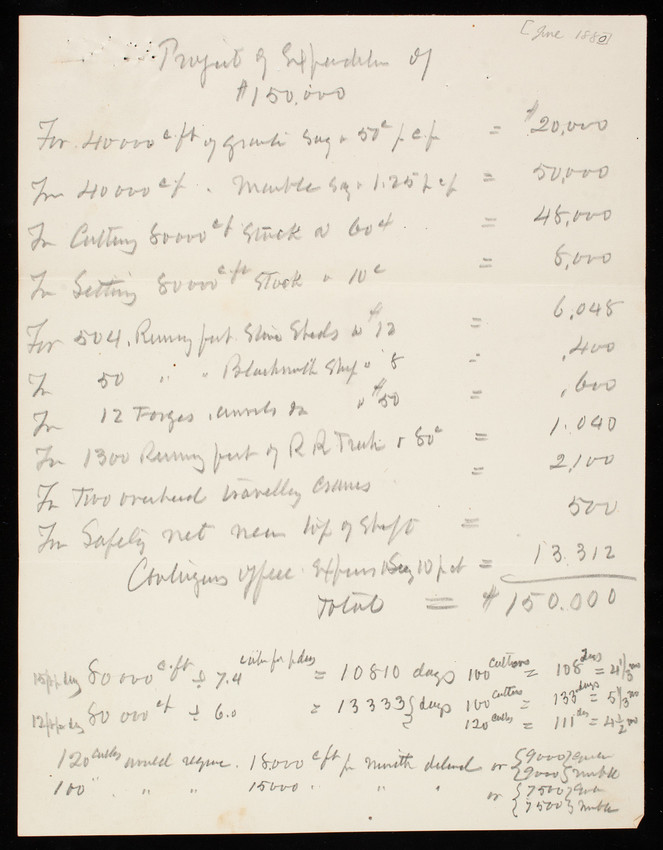 [June 1880]
Project of Expenditure of
$150,000
For 40000 c.ft of granite Say a 50c p c.f = $20,000
For 40000 c.f . Marble Say a 1.25 p c f = 50,000
For Cutting 80000 cf Stock a 60 c = 48,000
For Setting 80000 c.ft Stock a 10c = 8,000
For 504. Running feet Stone Sheds a $12 = 6,048
For 50 " " Blacksmith Shop " 8 = ,400
For 12 Forges, anvils &c " $50 = ,600
For 1300 Running feet of R R Track a 80c = 1.040
For Two overhead travelling Cranes = 2,100
For Safety net near top of Shaft = 500
Contingens office Expenses Say 10 p ct = 13.312
Total = $150.000
80000 c.ft ÷ 7.4 = 10810 days 100 Cutters = 108 days = 4 1/3 mo
80 000 cf ÷ 6.0 = 13333 days 100 Cutters = 133 days = 5 1/3 mo
120 cutters = 111 days = 4 1/2 mo
120 cutters would require 18000 cft per month delivered or {9000} granite
{9000} marble
100 " " " 15000 " " " or {7500} Gran
{7500} Marble